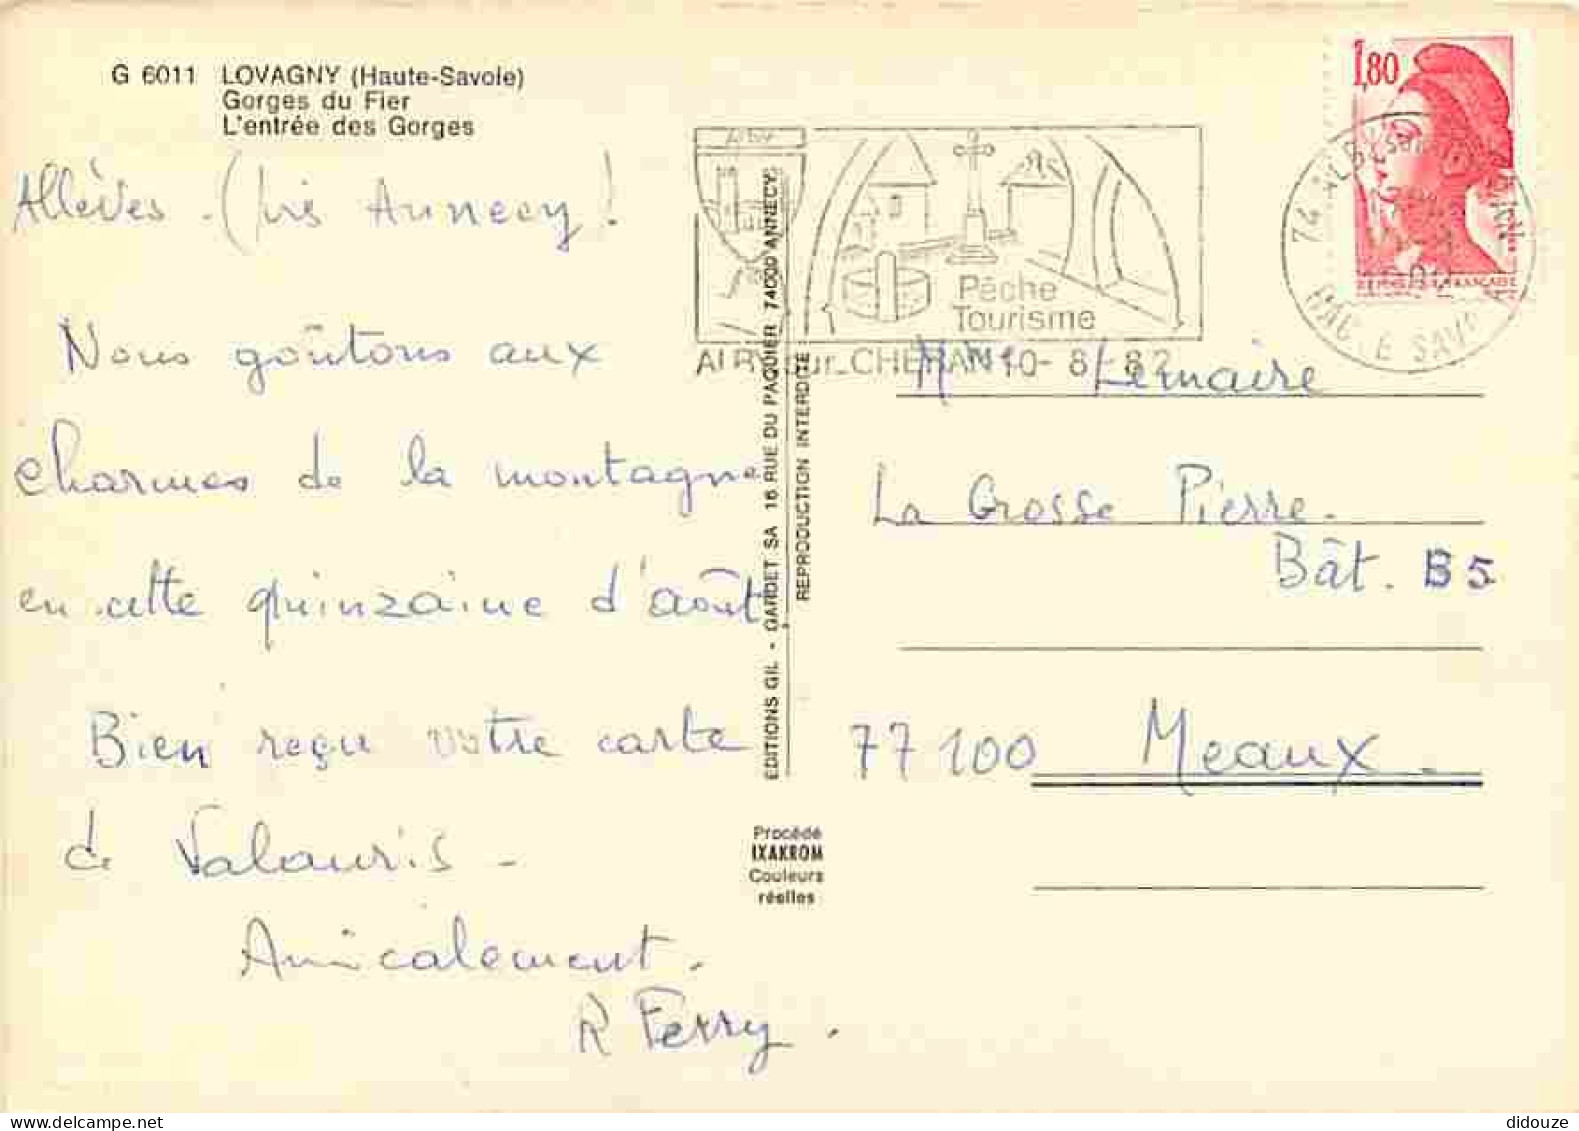 G 6011 LOVAGNY (Haute-Savoie)
Gorges du Fier
L'entrée des Gorges
Allèves - (près Annecy)
Nous goûtons aux
charmes de la montagne
en cette quinzaine d'août.
Bien reçu votre carte
de Valauris -
Amicalement.
R Ferry.
EDITIONS GIL - GARDET SA 16 RUE DU PAQUIER 74000 ANNECY
REPRODUCTION INTERDITE
Procédé
IXAKROM
Couleurs
réelles
Alby
Pêche
Tourisme
ALBY sur CHERAN 10-8-82
1,80
RÉPUBLIQUE FRANÇAISE
74 ALBY SUR CHERAN
HAUTE SAVOIE
Lemaire
La Grosse Pierre.
Bât. B5
77100 Meaux.
didouze